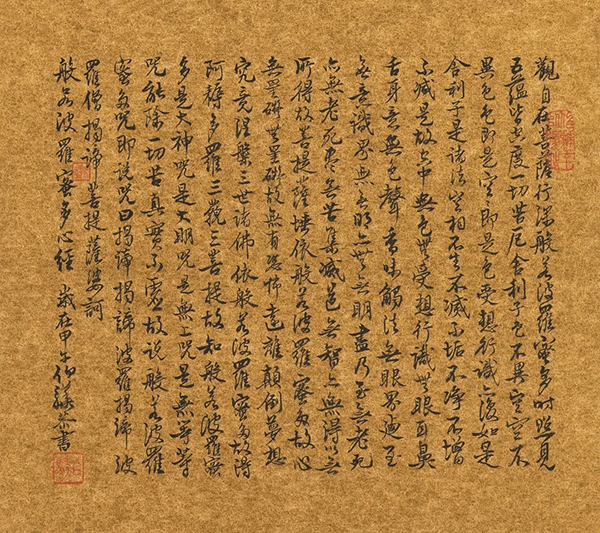 觀自在菩薩行深般若波羅蜜多時照見
五蘊皆空度一切苦厄舍利子色不異空空不
異色色即是空空即是色受想行識亦復如是
舍利子是諸法空相不生不滅不垢不淨不增
不減是故空中無色無受想行識無眼耳鼻
舌身意無色聲香味觸法無眼界迺至
無意識界無無明亦無無明盡乃至無老死
亦無老死盡無苦集滅道無智亦無得以無
所得故菩提薩埵依般若波羅蜜多故心
無罣礙無罣礙故無有恐怖遠離顛倒夢想
究竟涅槃三世諸佛依般若波羅蜜多故得
阿耨多羅三藐三菩提故知般若波羅蜜
多是大神咒是大明咒是無上咒是無等等
咒能除一切苦真實不虛故說般若波羅
蜜多咒即說咒曰揭諦揭諦波羅揭諦波
羅僧揭諦菩提薩婆訶
般若波羅蜜多心經 歲在甲午伯書